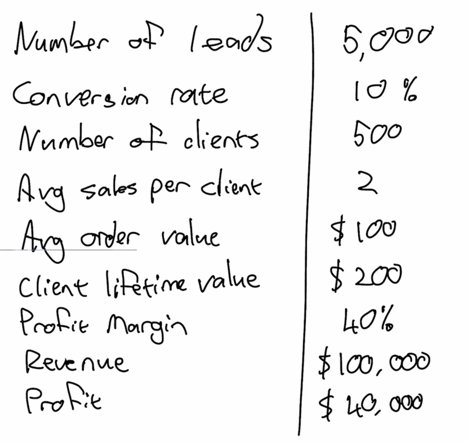 Number of leads 5,000
Conversion rate 10%
Number of clients 500
Avg sales per client 2
Avg order value $100
Client lifetime value $200
Profit Margin 40%
Revenue $100,000
Profit $40,000